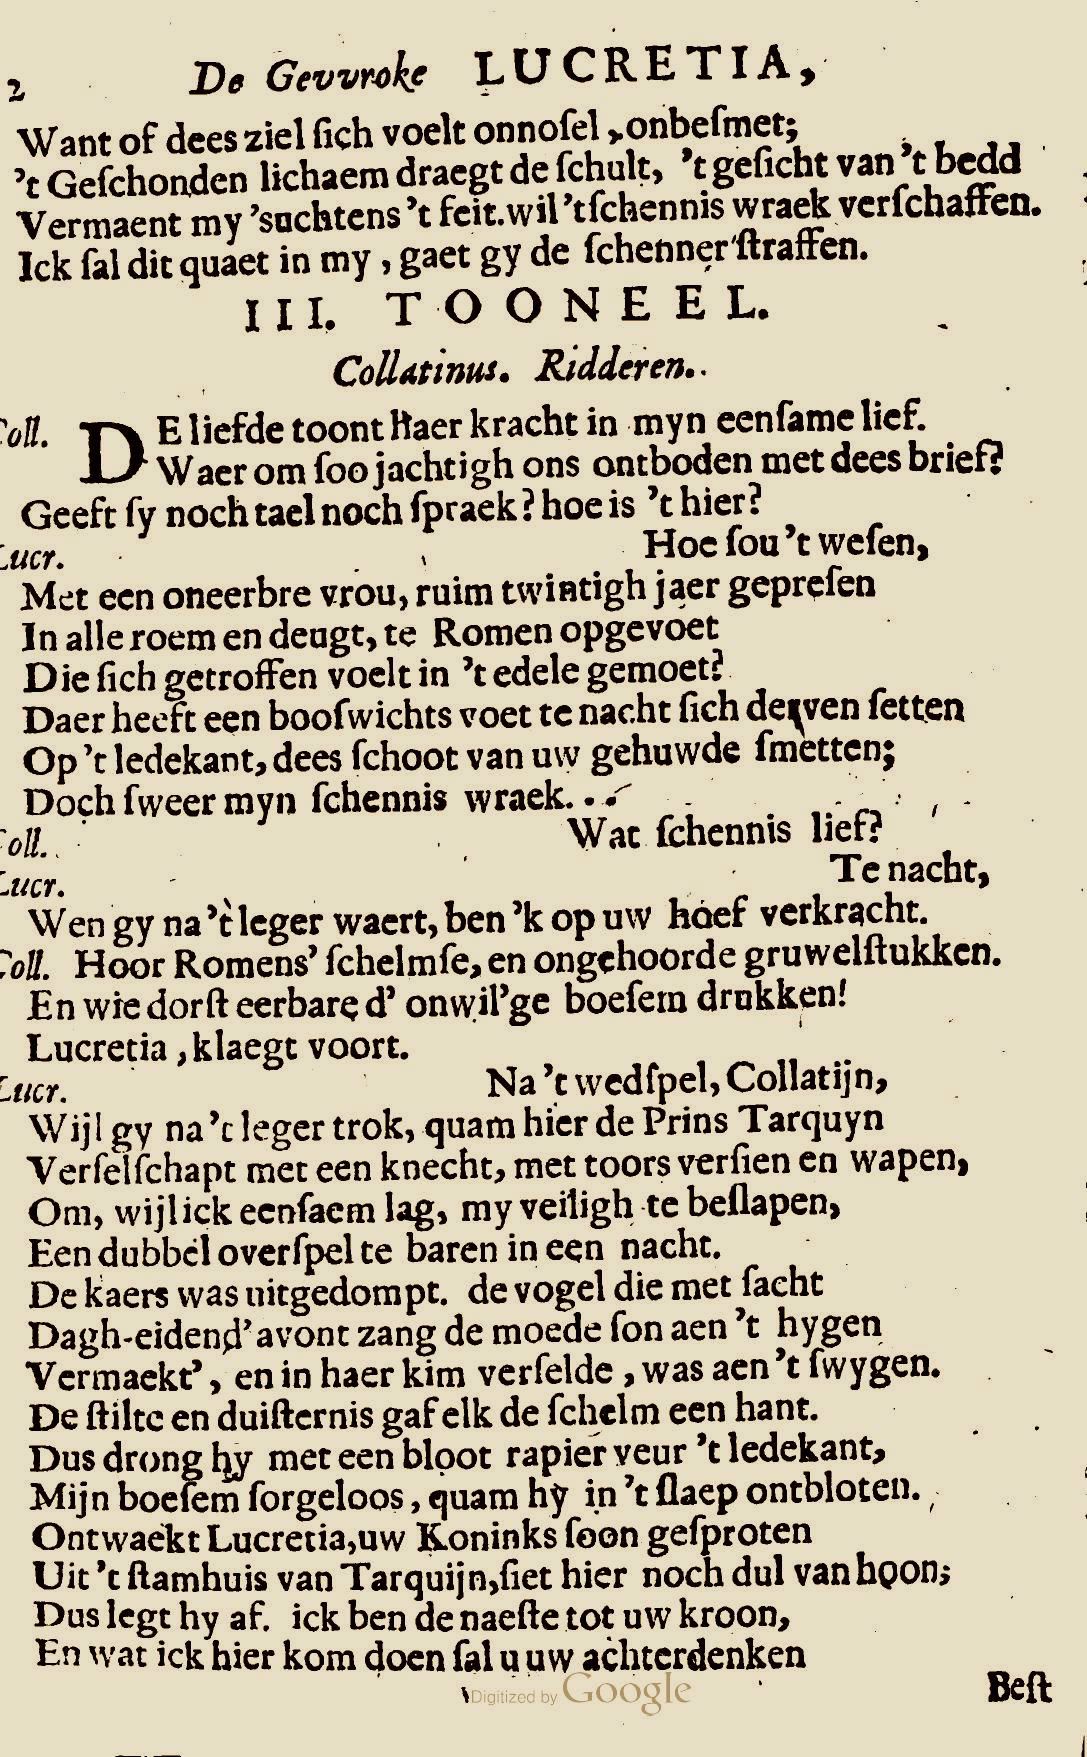 2 De Gevvroke LUCRETIA,
Want of dees ziel ſich voelt onnoſel, onbeſmet;
't Geſchonden lichaem draegt de ſchult, 't geſicht van 't bedd
Vermaent my 'suchtens 't feit. wil 't ſchennis wraek verſchaffen.
Ick ſal dit quaet in my, gaet gy de ſchenner ſtraffen.
III. TOONEEL.
Collatinus. Ridderen.
Coll. DE liefde toont haer kracht in myn eenſame lief.
Waer om ſoo jachtigh ons ontboden met dees brief?
Geeft ſy noch tael noch ſpraek? hoe is 't hier?
Lucr. Hoe ſou 't weſen,
Met een oneerbre vrou, ruim twintigh jaer gepreſen
In alle roem en deugt, te Romen opgevoet
Die ſich getroffen voelt in 't edele gemoet?
Daer heeft een booſwichts voet te nacht ſich derven ſetten
Op 't ledekant, dees ſchoot van uw gehuwde ſmetten;
Doch ſweer myn ſchennis wraek...
Coll. Wat ſchennis lief?
Lucr. Te nacht,
Wen gy na 't leger waert, ben 'k op uw hoef verkracht.
Coll. Hoor Romens' ſchelmſe, en ongehoorde gruwelſtukken.
En wie dorſt eerbare d' onwil'ge boeſem drukken!
Lucretia, klaegt voort.
Lucr. Na 't wedſpel, Collatijn,
Wijl gy na 't leger trok, quam hier de Prins Tarquyn
Verſelſchapt met een knecht, met toors verſien en wapen,
Om, wijl ick eenſaem lag, my veiligh te beſlapen,
Een dubbel overſpel te baren in een nacht.
De kaers was uitgedompt. de vogel die met ſacht
Dagh-eidend' avont zang de moede ſon aen 't hygen
Vermaekt', en in haer kim verſelde, was aen 't ſwygen.
De ſtilte en duiſternis gaf elk de ſchelm een hant.
Dus drong hy met een bloot rapier veur 't ledekant,
Mijn boeſem ſorgeloos, quam hy in 't ſlaep ontbloten.
Ontwaekt Lucretia, uw Koninks ſoon geſproten
Uit 't ſtamhuis van Tarquijn, ſiet hier noch dul van hoon;
Dus legt hy af. ick ben de naeſte tot uw kroon,
En wat ick hier kom doen ſal u uw achterdenken
Beſt
Digitized by Google